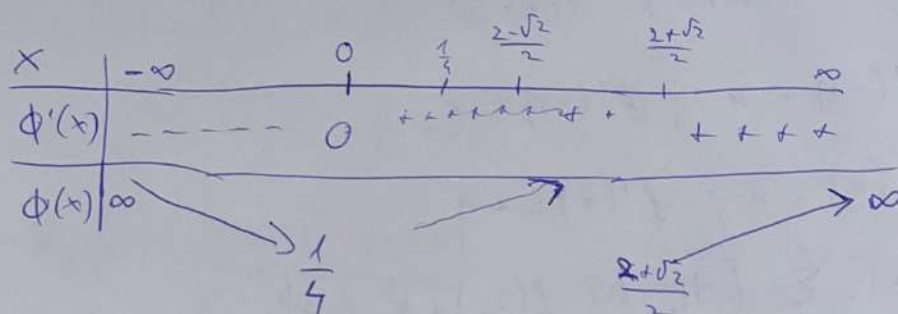 x -∞ 0 1/4 (2-√2)/2 (2+√2)/2 ∞
ϕ'(x) - - - - - - 0 + + + + + + + + + + + + +
ϕ(x) ∞ ↘ 1/4 ↗ (2+√2)/2 ↗ ∞